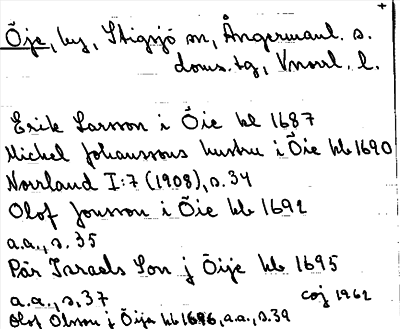 +
Öje, by, Stigsjö sn, Ångermanl. s.
doms.tg, Vnorrl. l.
Erik Larsson i Öie kb 1687
Michel Johanssons hustru i Öie kb 1690
Norrland I:7 (1908), s. 34
Olof Jonsson i Öie kb 1692
a.a., s. 35
Pär Israels Son j Öije kb 1695
a.a., s. 37
Olof Olsson j Öije kb 1696, a.a., s. 39